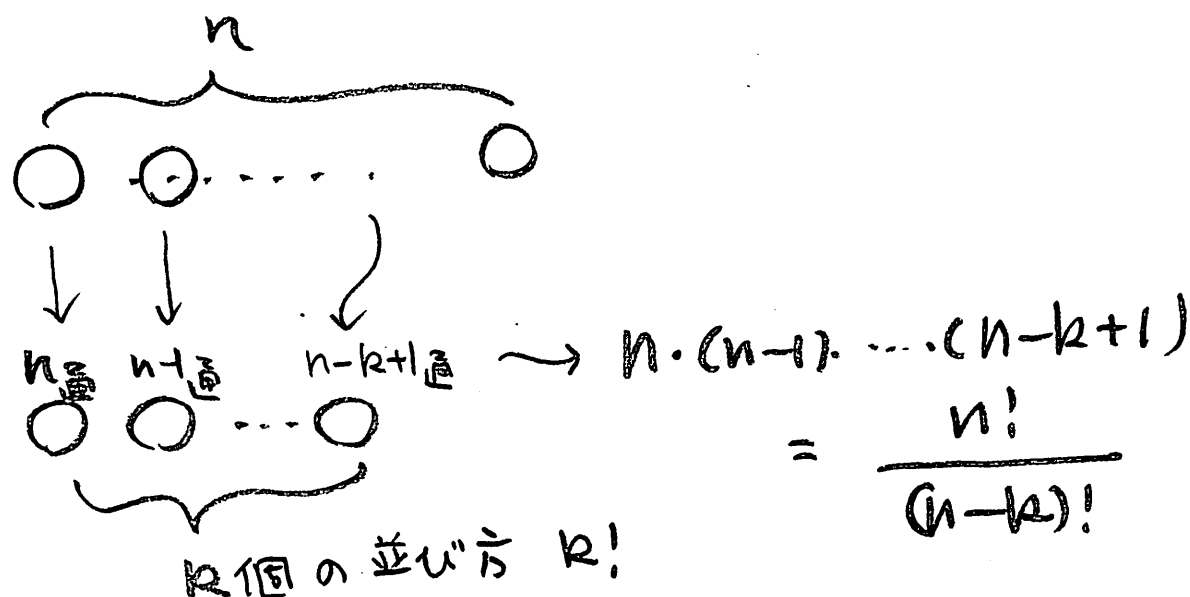 n
n通 n-1通 n-k+1通 → n・(n-1)・……・(n-k+1)
= n!/(n-k)!
k個の並び方 k!